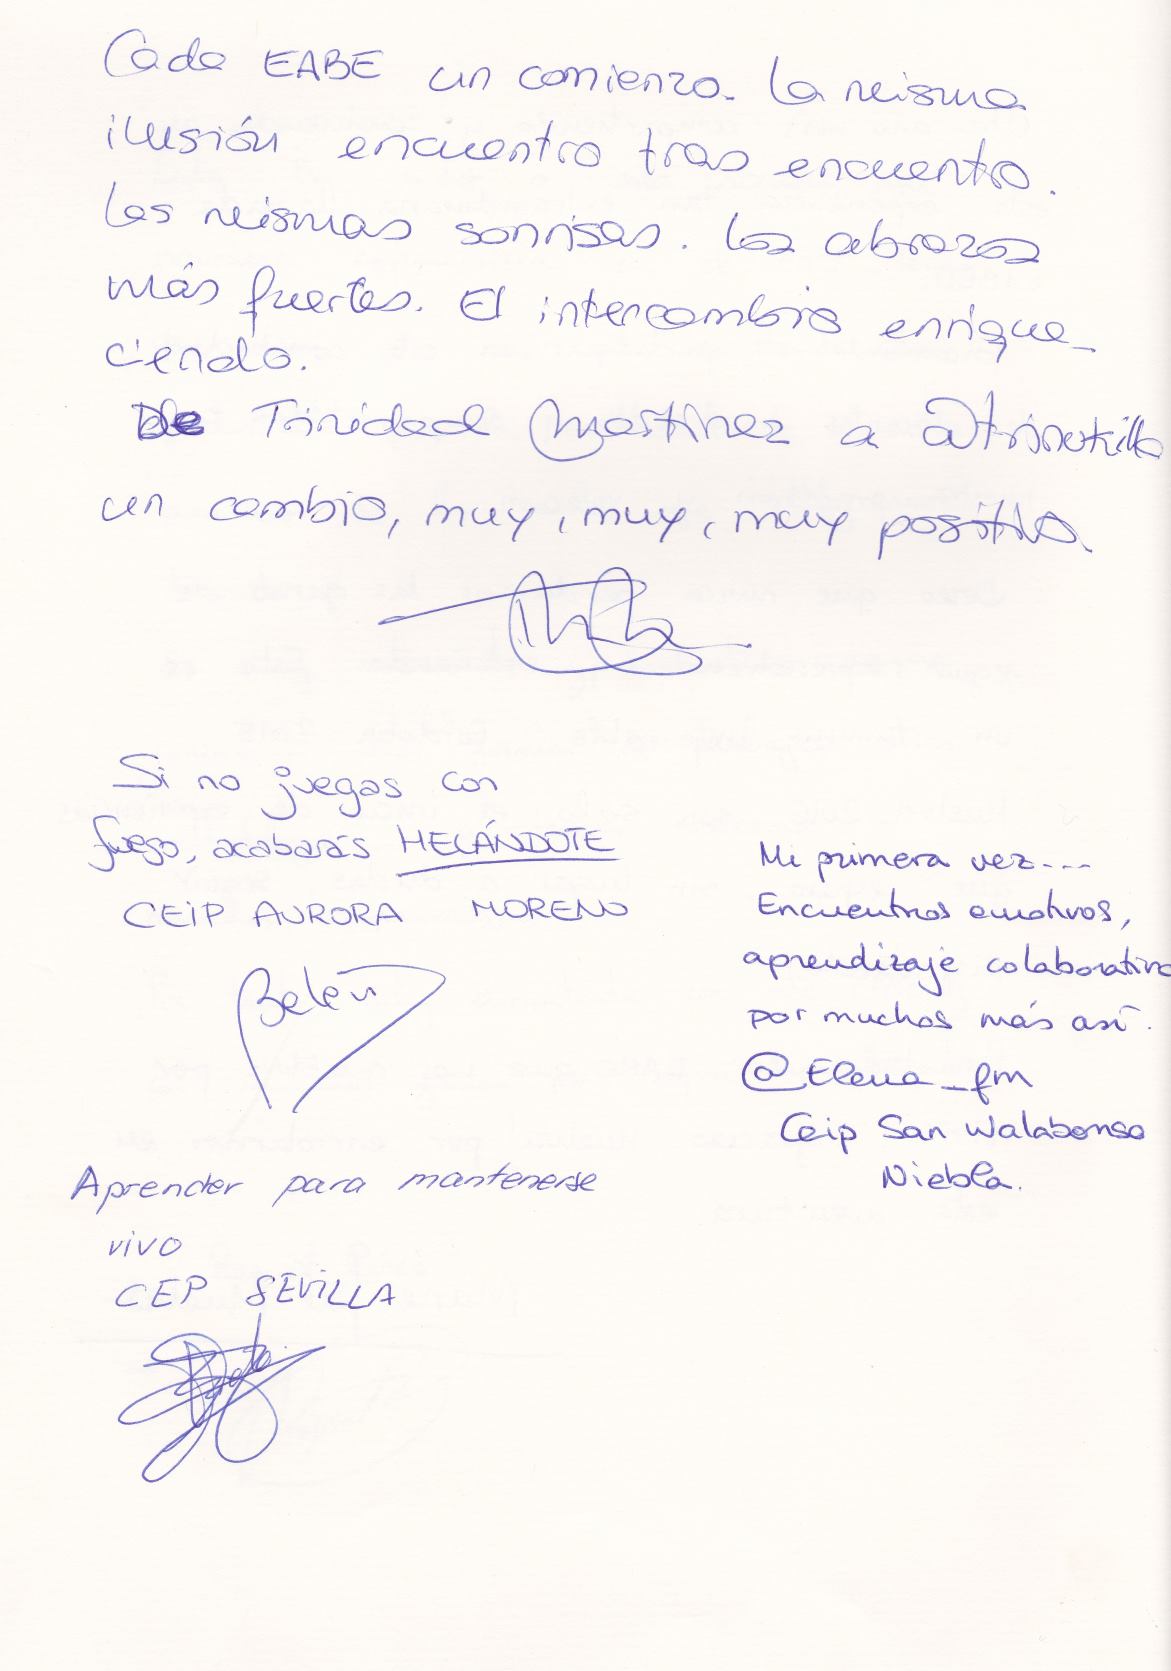 Cada EABE un comienzo. La misma
ilusión encuentro tras encuentro.
Las mismas sonrisas. Los abrazos
más fuertes. El intercambio enrique-
ciendo.
De Trinidad Martínez a @trinitilla
un cambio, muy, muy, muy positivo.
Si no juegas con
fuego, acabarás HELÁNDOTE
CEIP AURORA MORENO
Belén
Mi primera vez....
Encuentros emotivos,
aprendizaje colaborativo
por muchos más así.
@Elena_fm
Ceip San Walabonso
Niebla.
Aprender para mantenerse
vivo
CEP SEVILLA